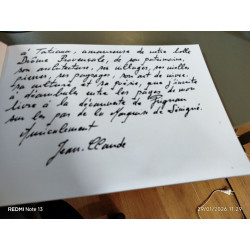 à Tatiana, amoureuse de notre belle
Drôme Provençale, de son patrimoine,
son architecture, ses villages, ses vieilles
pierres, ses paysages, son art de vivre,
sa culture et sa poésie, que j'invite
à déambuler entre les pages de mon
livre à la découverte de Grignan
sur les pas de la Marquise de Sévigné.
Amicalement
Jean-Claude
REDMI Note 13
29/01/2026 11:29